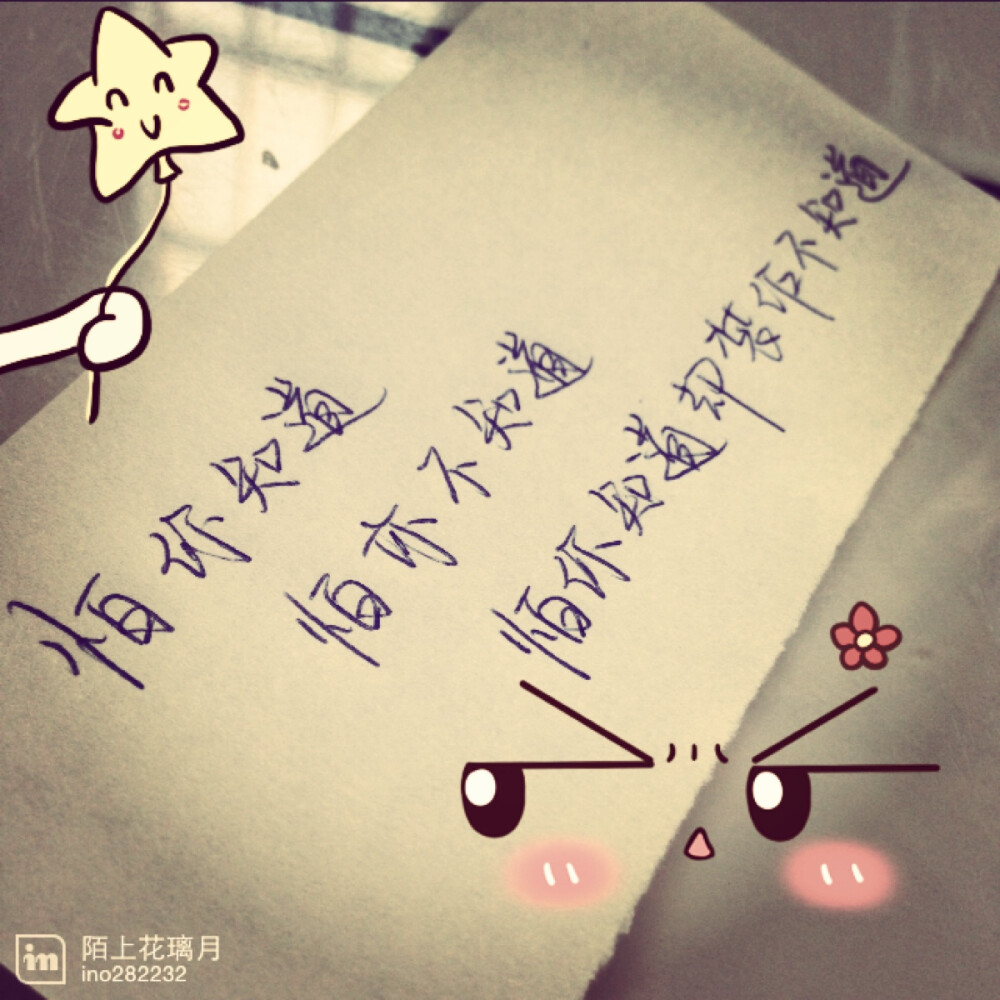 怕你知道
怕你不知道
怕你知道却装作不知道
im
陌上花璃月
ino282232